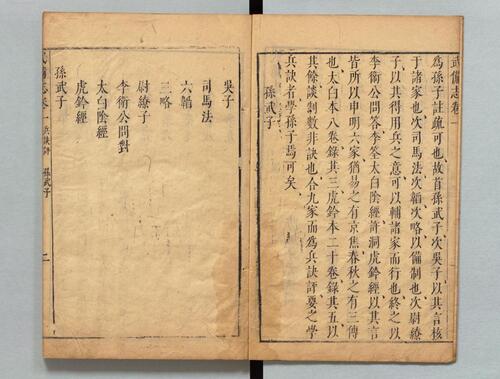 武備志卷一
為孫子註疏可也故首孫武子次吳子以其言核
于諸家也次司馬法次韜次略以備制也次尉繚
子以其得用兵之意可以輔諸家而行也終之以
李衛公問答李筌太白陰經許洞虎鈐經以其言
皆所以申明六家猶易之有京焦春秋之有三傳
也太白本八卷錄其三虎鈐本二十卷錄其五以
其餘談剩數非訣也合九家而為兵訣評要之學
兵訣者學孫子焉可矣
孫武子
吳子
司馬法
六韜
三略
尉繚子
李衛公問對
太白陰經
虎鈐經
孫武子
備志卷一 兵訣評 孫武子 二